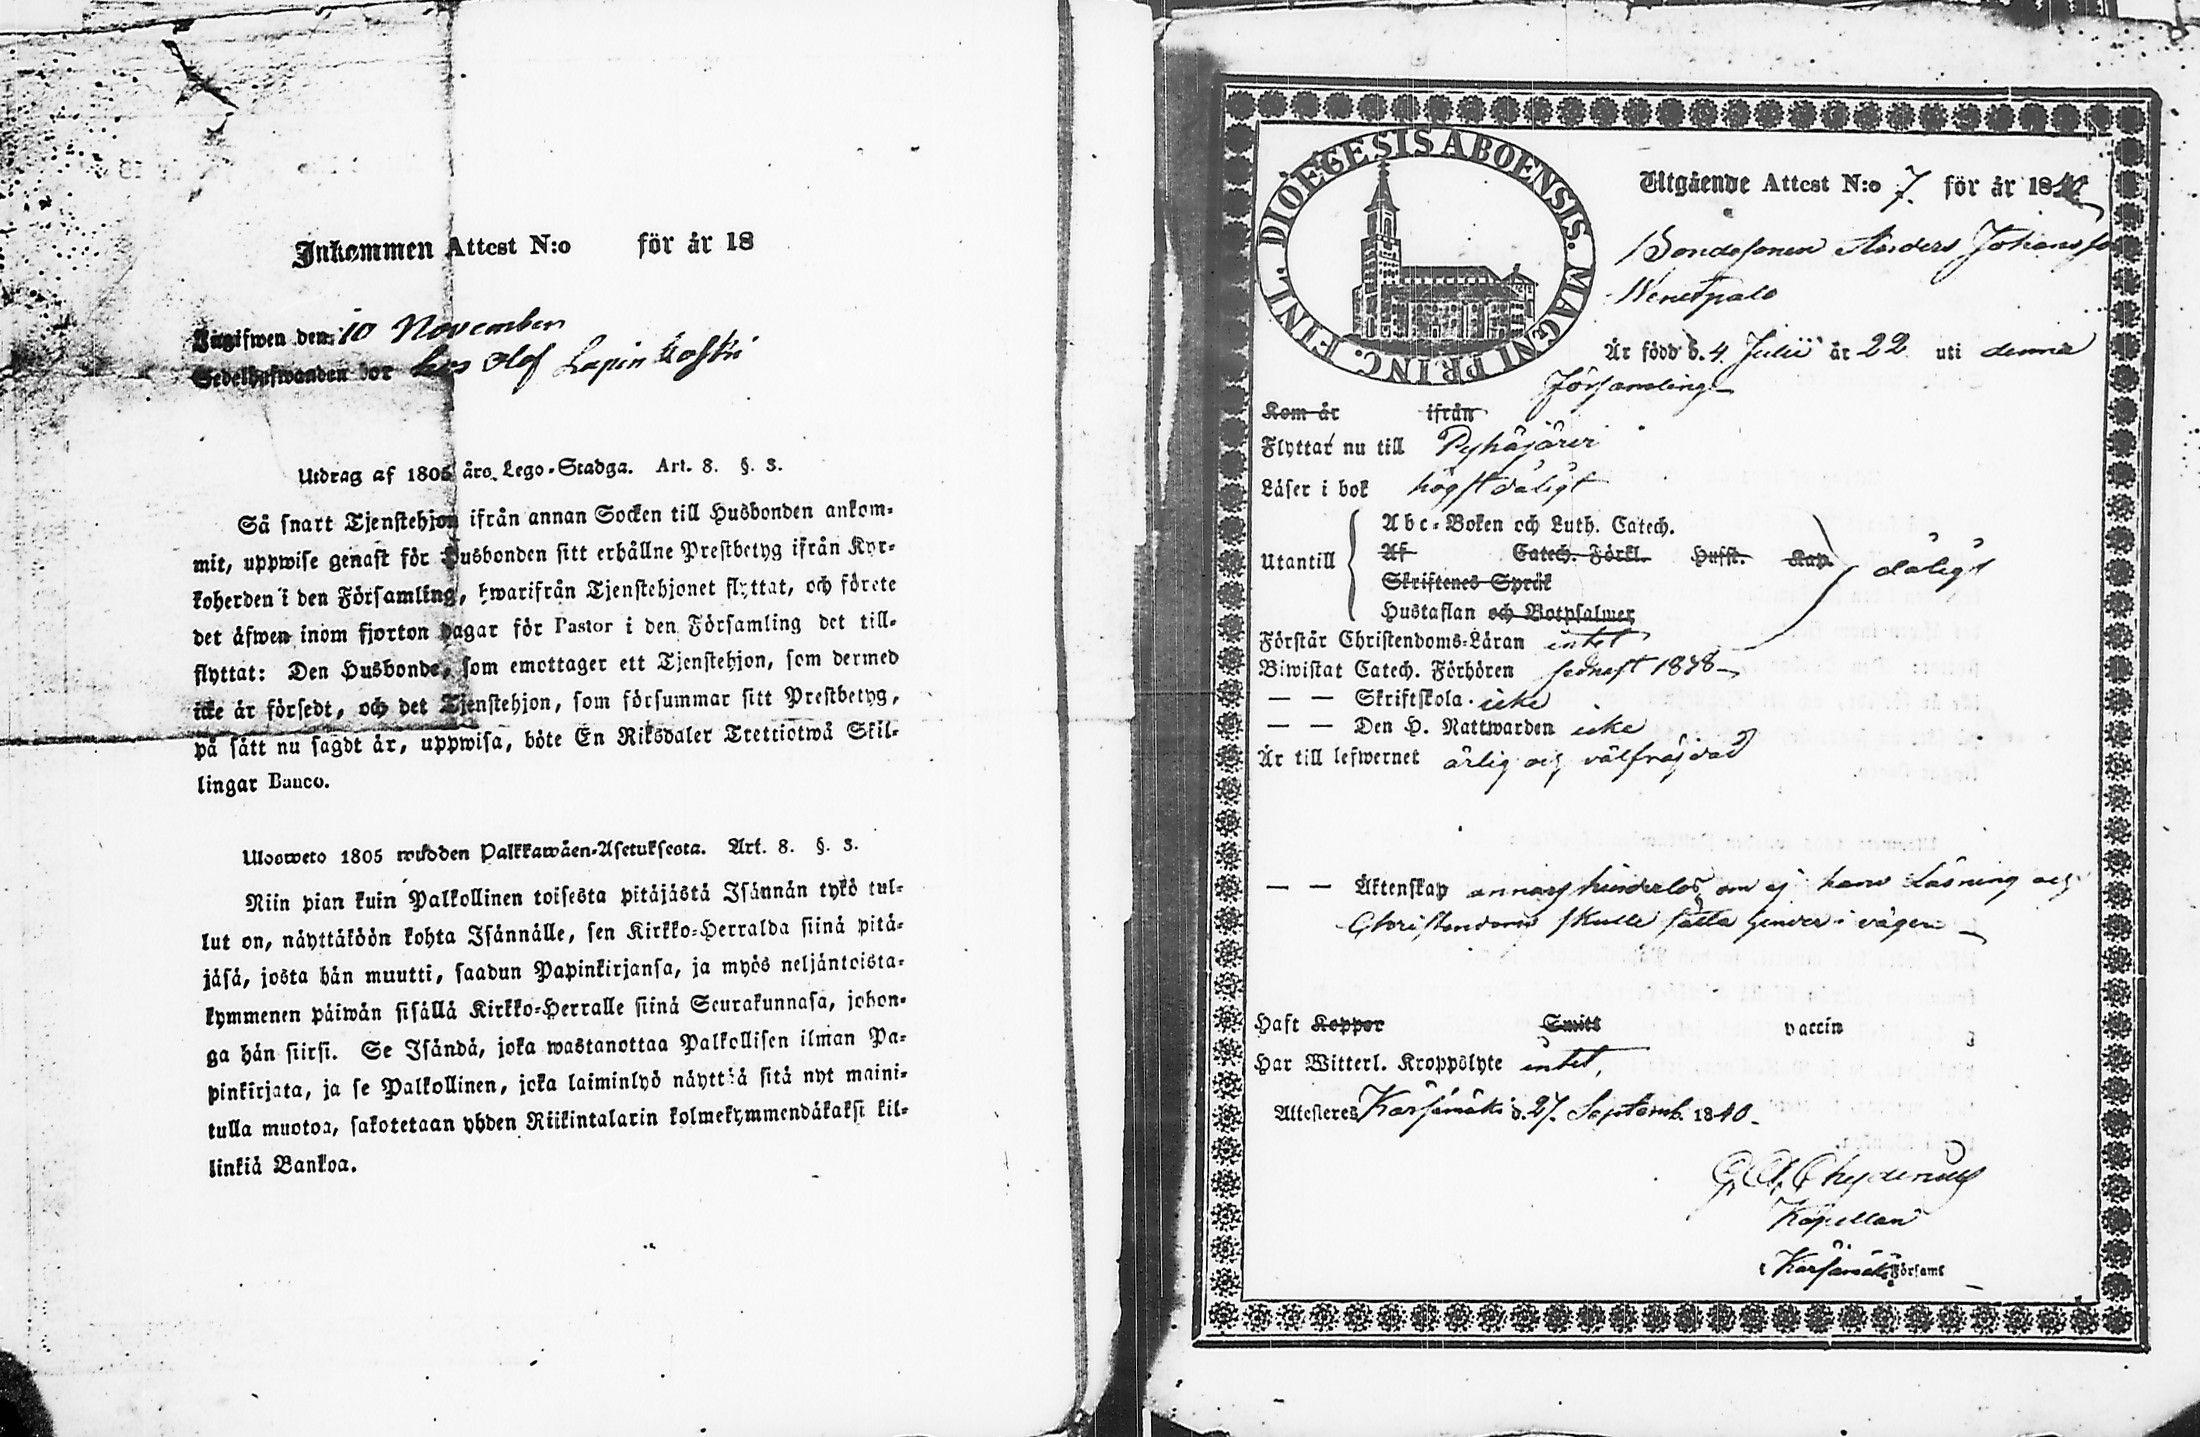 Inkommen Attest N:o för år 18
Ingifwen den 10 November
Sedelhafwanden bor hos Olof Lapinkoski
Utdrag af 1805 års Lego-Stadga. Art. 8. §. 3.
Så snart Tjenstehjon ifrån annan Socken till Husbonden ankom-
mit, uppwise genast för Husbonden sitt erhållne Prestbetyg ifrån Kyr-
koherden i den Församling, hwarifrån Tjenstehjonet flyttat, och förete
det äfwen inom fjorton dagar för Pastor i den Församling det till-
flyttat: Den Husbonde, som emottager ett Tjenstehjon, som dermed
icke är försedt, och det Tjenstehjon, som försummar sitt Prestbetyg,
på sätt nu sagdt är, uppwisa, böte En Riksdaler Trettiotwå Skil-
lingar Banco.
Ulosweto 1805 wuoden Palkkawäen-Asetuksesta. Art. 8. §. 3.
Niin pian kuin Palkollinen toisesta pitäjästä Isännän tykö tul-
lut on, näyttäköön kohta Isännälle, sen Kirkko-Herralda siinä pitä-
jäsä, josta hän muutti, saadun Papinkirjansa, ja myös neljäntoista-
kymmenen päiwän sisällä Kirkko-Herralle siinä Seurakunnasa, johon-
ga hän siirsi. Se Isändä, joka wastanottaa Palkollisen ilman Pa-
pinkirjata, ja se Palkollinen, joka laiminlyö näyttää sitä nyt maini-
tulla muotoa, sakotetaan yhden Riikintalarin kolmekymmendäkaksi kil-
linkiä Bankoa.
DIOECESIS ABOENSIS. MAGNI PRINC. FINL.
Utgående Attest N:o 7 för år 1840
Bondesonen Anders Johansso
Wenetpalo
Är född d. 4 Julii år 22 uti denna
församling
Kom år ifrån
Flyttar nu till Pyhäjärvi
Läser i bok högst dåligt
Abc-Boken och Luth. Catech.
Utantill Af Catech. Förkl. Husst. Kap. dåligt
Skriftenes Språk
Hustaflan och Botpsalmer
Förstår Christendoms-Läran intet
Biwistat Catech. Förhören sednast 1838
— — Skriftskola icke
— — Den H. Nattwarden icke
Är till lefwernet ärlig och välfräjdad
— — Äktenskap annars hinderlös om ej hans Läsning och
Christendom skulle sätta hinder i vägen
Haft Koppor Smitt vaccin
Har Witterl. Kroppslyte intet,
Attesteres Kärsämäki d. 27. Septemb. 1840.
Chydenius
Kapellan
i Kärsämäki Församl